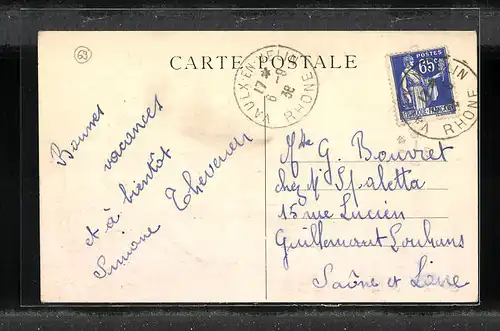 63
CARTE POSTALE
VAULX-EN-VELIN
17 *
6 - 8
38
RHONE
POSTES
65c
VELIN
RHONE
Bonnes
vacances
et à bientôt
Simone Thevenen
Mlle G. Bouvret
chez Mr Spaletta
15 rue Lucien
Guillemaut Louhans
Saône et Loire